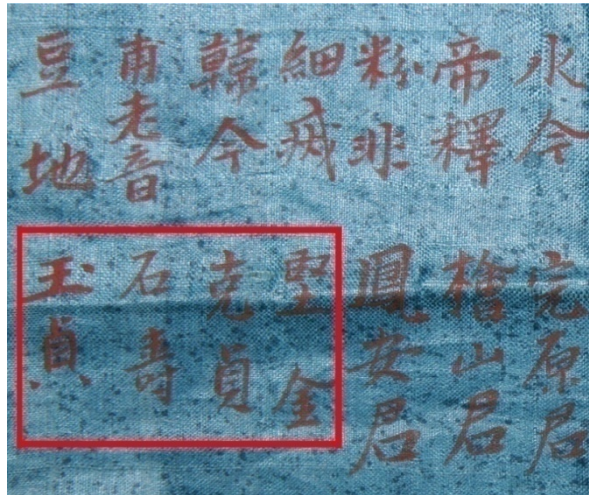 水今
帝釋
粉非
細㓕
韓今
甫老音
豆地
完原君
檜山君
鳳安君
堅金
克貞
石壽
玉貞